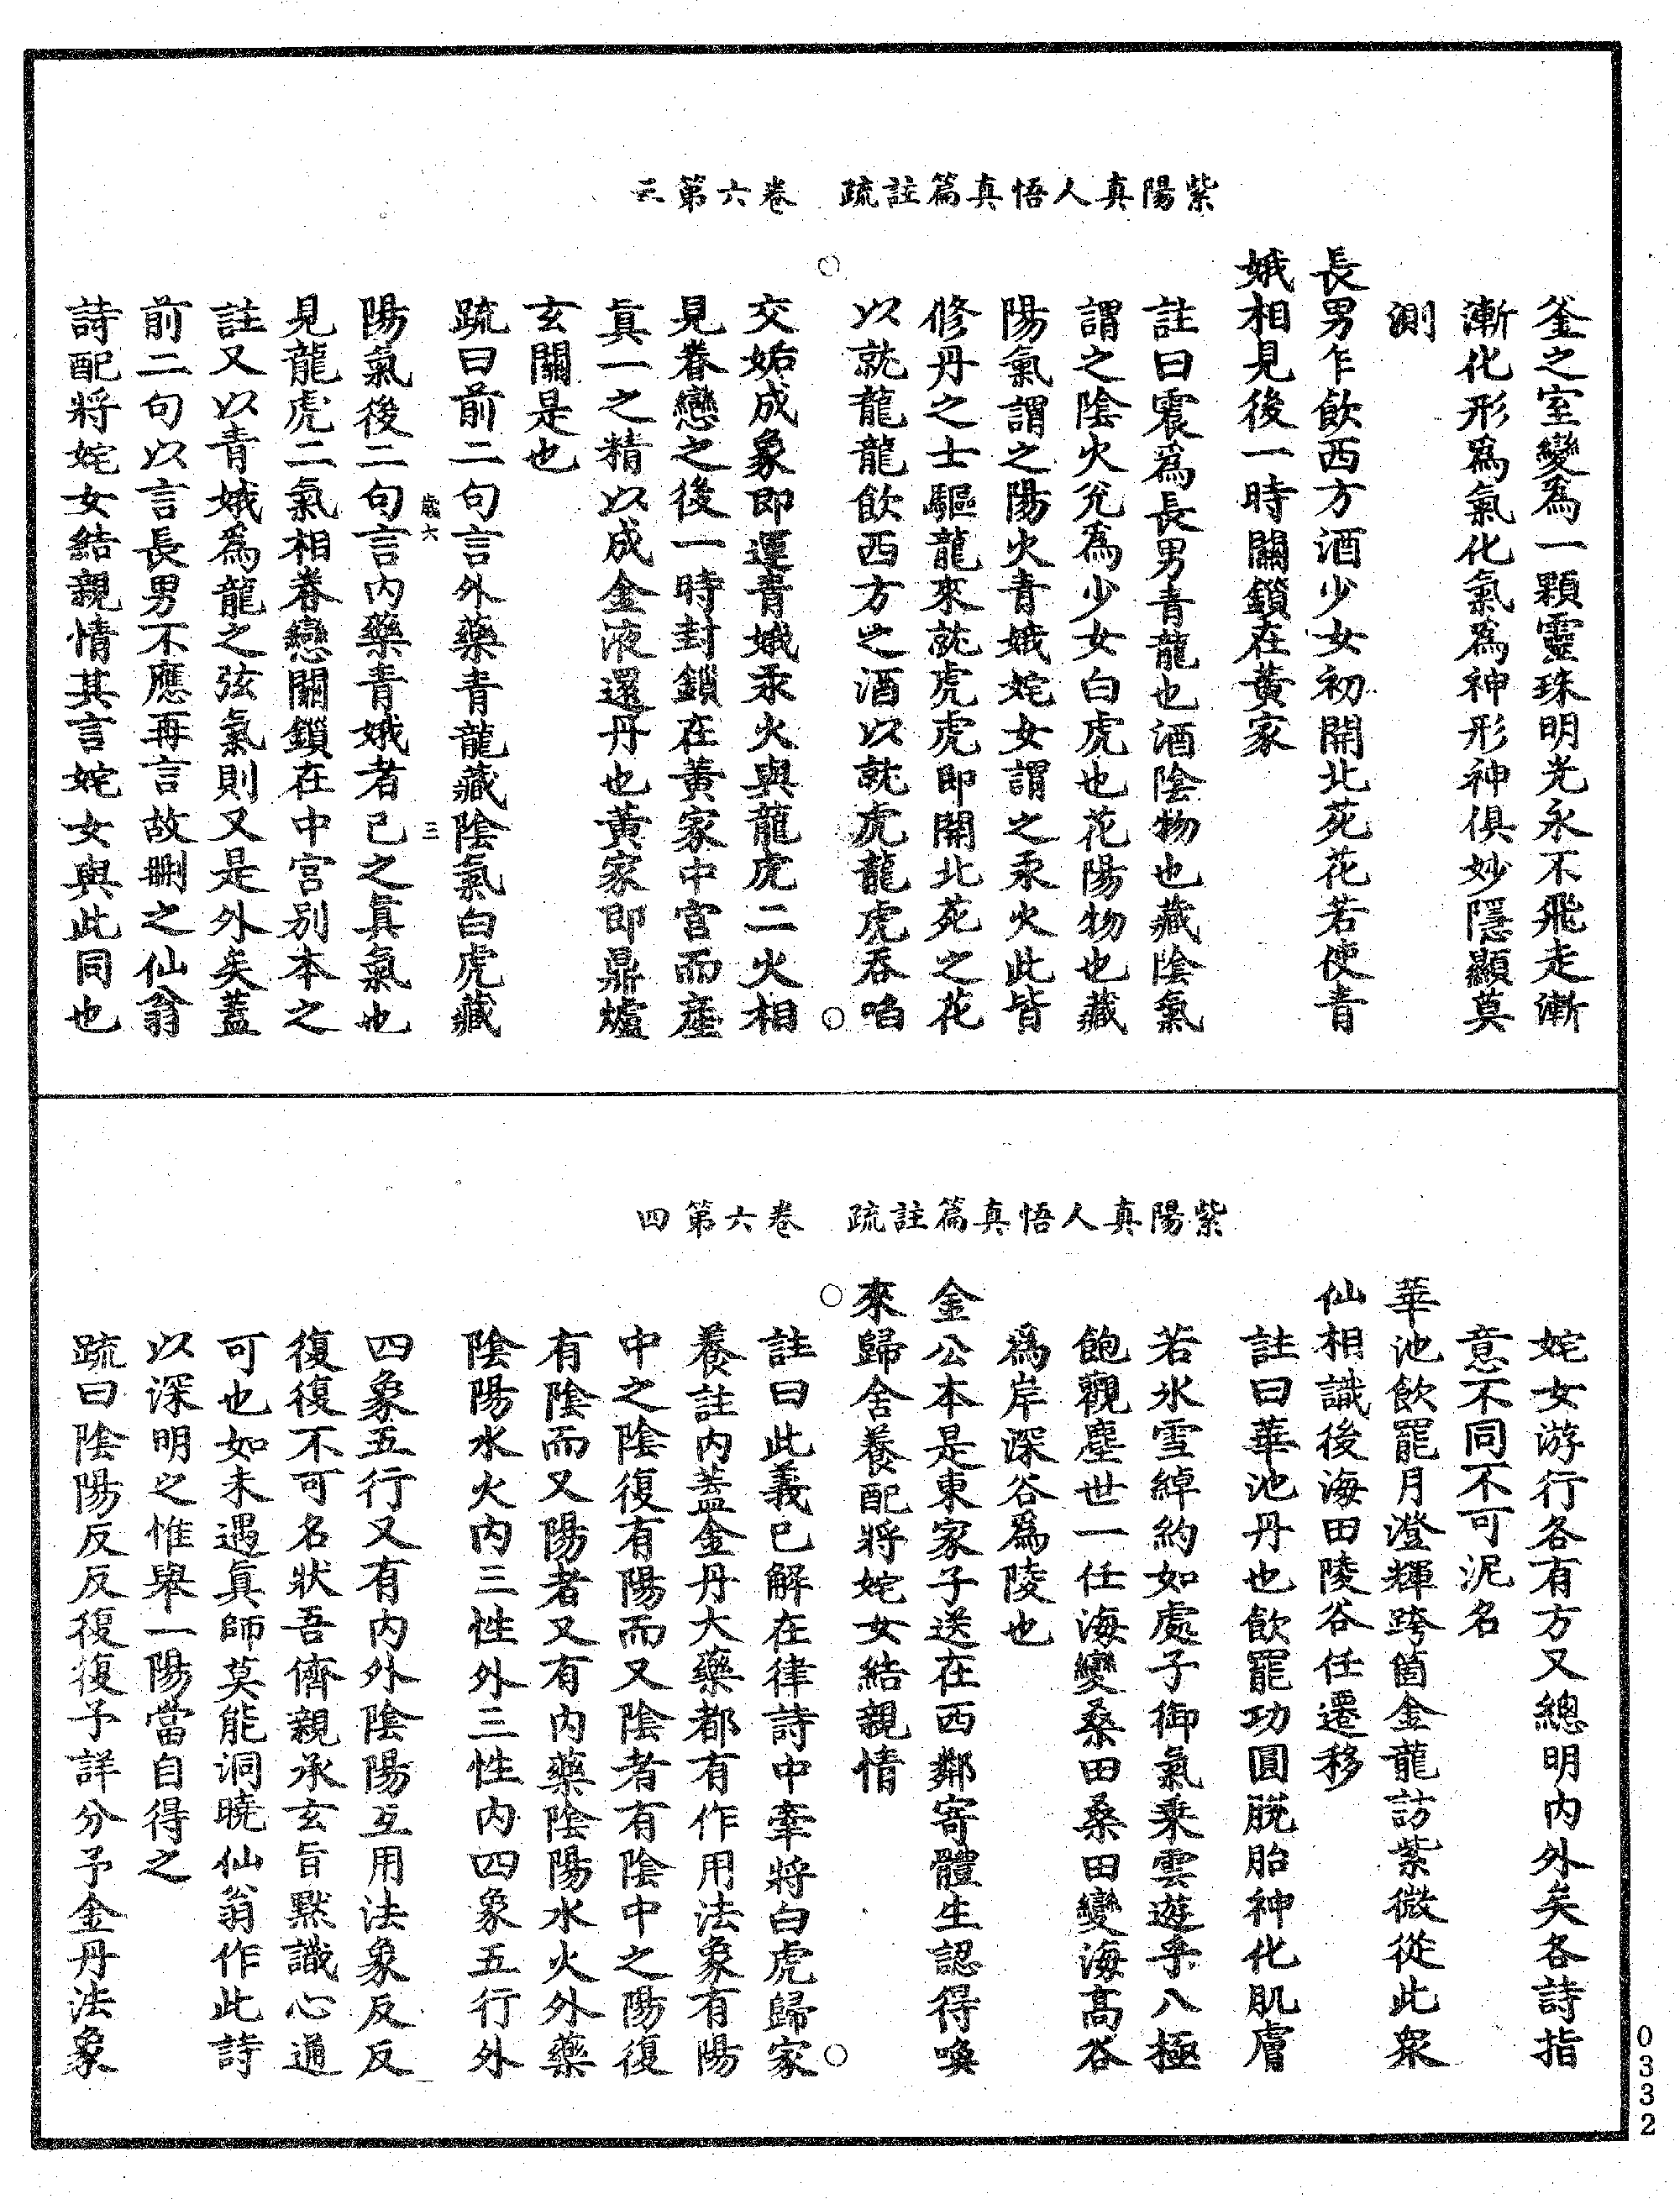 紫陽真人悟真篇註疏　卷六第三
釜之室變為一顆靈珠明光永不飛走漸
漸化形爲氣化氣爲神形神俱妙隱顯莫
測
長男乍飲西方酒少女初開北苑花若使青
娥相見後一時關鎖在黃家
註曰震爲長男青龍也酒陰物也藏陰氣
謂之陰火兊爲少女白虎也花陽物也藏
陽氣謂之陽火青娥姹女謂之汞火此皆
修丹之士驅龍來就虎虎即開北苑之花
以就龍龍飲西方之酒以就虎龍虎吞啗
交姤成象即運青娥汞火與龍虎二火相
見眷戀之後一時封鎖在黃家中宮而産
眞一之精以成金液還丹也黃家即鼎爐
玄關是也
疏曰前二句言外藥青龍藏陰氣白虎藏
歲六　三
陽氣後二句言內藥青娥者己之眞氣也
見龍虎二氣相眷戀關鎖在中宮别本之
註又以青娥爲龍之弦氣則又是外矣蓋
前二句以言長男不應再言故刪之仙翁
詩配將姹女結親情其言姹女與此同也
紫陽真人悟真篇註疏　卷六第四
姹女游行各有方又總明內外矣各詩指
意不同不可泥名
華池飲罷月澄輝跨箇金龍訪紫微從此衆
仙相識後海田陵谷任遷移
註曰華池丹也飲罷功圓脫胎神化肌膚
若氷雪綽約如處子御氣乘雲遊乎八極
飽觀塵世一任海變桑田桑田變海高谷
爲岸深谷爲陵也
金公本是東家子送在西鄰寄體生認得喚
來歸舍養配將姹女結親情
註曰此義已解在律詩中牽將白虎歸家
養註內蓋金丹大藥都有作用法象有陽
中之陰復有陽而又陰者有陰中之陽復
有陰而又陽者又有內藥陰陽水火外藥
陰陽水火內三性外三性內四象五行外
四象五行又有內外陰陽互用法象反反
復復不可名狀吾儕親承玄旨默識心通
可也如未遇眞師莫能洞曉仙翁作此詩
以深明之惟舉一陽當自得之
疏曰陰陽反反復復子詳分予金丹法象
0332